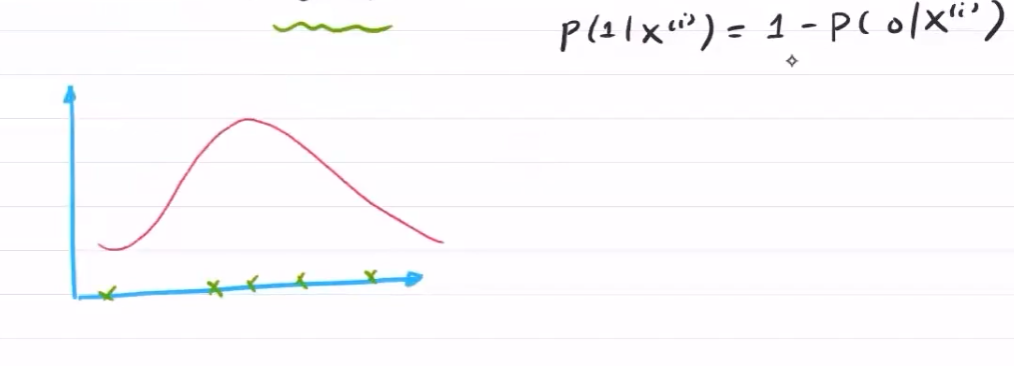 P(1/x⁽ⁱ⁾) = 1 - P(0/x⁽ⁱ⁾)